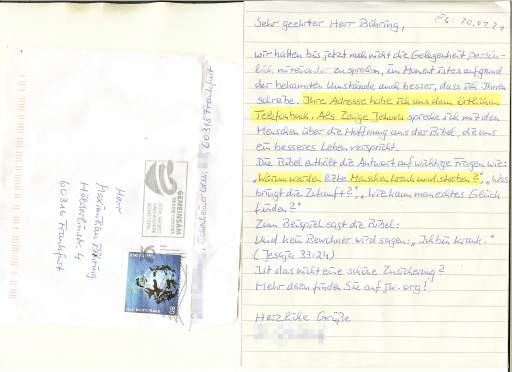 Sehr geehrter Herr Bühring,
wir hatten bis jetzt noch nicht die Gelegenheit persön-
lich miteinander zu sprechen, im Moment ist es aufgrund
der bekannten Umstände auch besser, dass ich Ihnen
schreibe. Ihre Adresse habe ich aus dem örtlichen
Telefonbuch. Als Zeuge Jehovas spreche ich mit den
Menschen über die Hoffnung aus der Bibel, die uns
ein besseres Leben verspricht.
Die Bibel enthält die Antwort auf wichtige Fragen wie:
"Warum werden liebe Menschen krank und sterben?", "Was
bringt die Zukunft?", "Wie kann man echtes Glück
finden?"
Zum Beispiel sagt die Bibel:
Und kein Bewohner wird sagen: "Ich bin krank."
(Jesaja 33:24)
Ist das nicht eine schöne Zusicherung?
Mehr dazu finden Sie auf jw.org!
Herzliche Grüße
Herr
Maximilian Bühring
Hölderlinstr. 4
60316 Frankfurt
60385 Frankfurt
GEMEINSAM